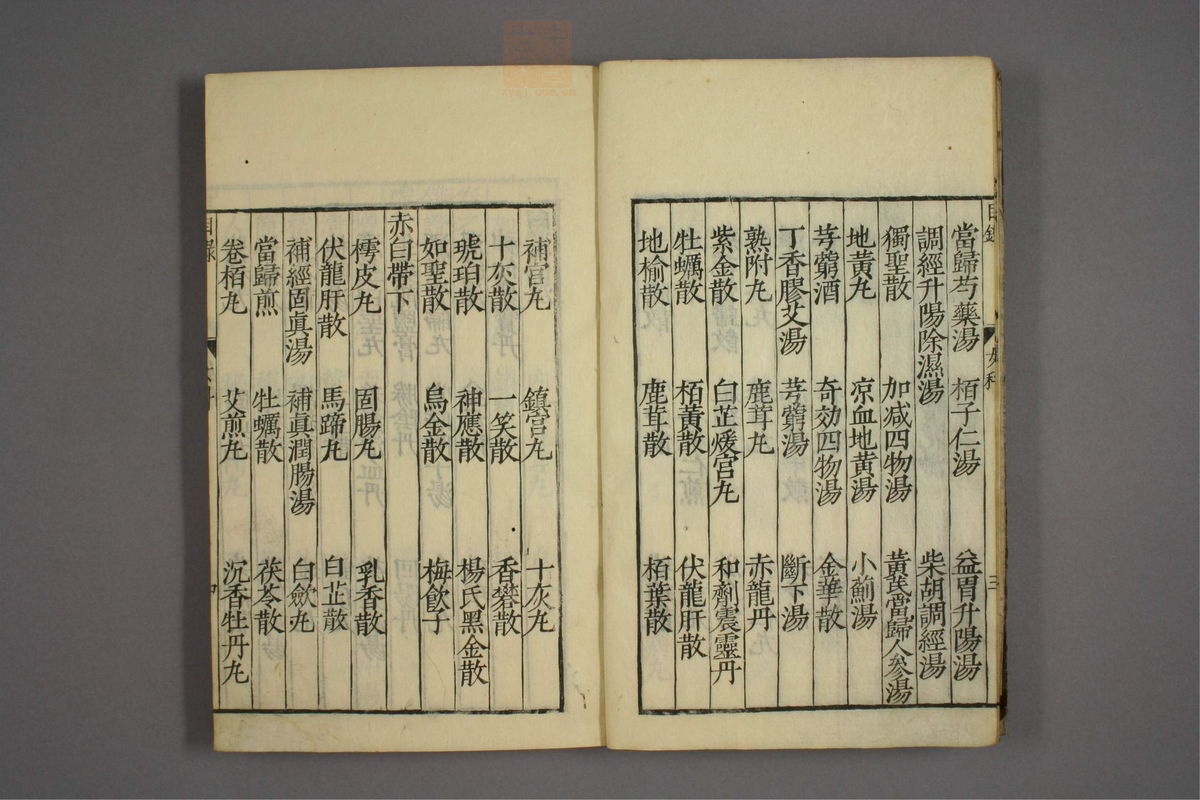 當歸芍藥湯 栢子仁湯 益胃升陽湯
調經升陽除濕湯 柴胡調經湯
獨聖散 加減四物湯 黃芪當歸人參湯
地黃丸 凉血地黃湯 小薊湯
芎藭酒 奇効四物湯 金華散
丁香膠艾湯 芎藭湯 斷下湯
熟附丸 鹿茸丸 赤龍丹
紫金散 白芷煖宮丸 和劑震靈丹
牡蠣散 栢黃散 伏龍肝散
地榆散 鹿茸散 栢葉散
補宮丸 鎮宮丸 十灰丸
十灰散 一笑散 香礬散
琥珀散 神應散 楊氏黑金散
如聖散 烏金散 梅飲子
赤白帶下
樗皮丸 固腸丸 乳香散
伏龍肝散 馬蹄丸 白芷散
補經固眞湯 補眞潤腸湯 白歛丸
當歸煎 牡蠣散 茯苓散
卷栢丸 艾煎丸 沉香牡丹丸
目錄